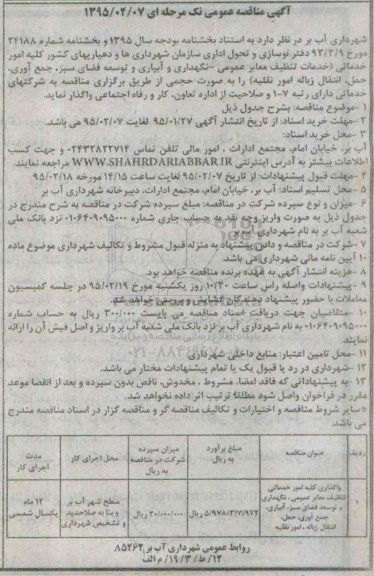 آگهی مناقصه عمومی تک مرحله ای ۱۳۹۵/۰۲/۰۷
شهرداری آب بر در نظر دارد به استناد بخشنامه بودجه سال ۱۳۹۵ و بخشنامه شماره ۲۴۱۸۸
مورخ ۹۳/۳/۹ دفتر نوسازی و تحول اداری سازمان شهرداری ها و دهیاریهای کشور کلیه امور
خدماتی (خدمات تنظیف معابر عمومی -نگهداری و آبیاری و توسعه فضای سبز، جمع آوری،
حمل، انتقال زباله امور نقلیه) را به صورت حجمی از طریق برگزاری مناقصه به شرکتهای
خدماتی دارای رتبه ۷-۱ و صلاحیت از اداره تعاون، کار و رفاه اجتماعی واگذار نماید.
۱-موضوع مناقصه: بشرح جدول ذیل
۲-مهلت خرید اسناد: از تاریخ انتشار آگهی ۹۵/۰۱/۲۷ لغایت ۹۵/۰۲/۰۷ می باشد.
۳-محل خرید اسناد:
آب بر، خیابان امام، مجتمع ادارات ، امور مالی تلفن تماس ۰۲۴۳۲۸۲۲۷۱۴ و جهت کسب
اطلاعات بیشتر به آدرس اینترنتی WWW.SHAHRDARIABBAR.IR مراجعه نمایند.
۴-مهلت قبول پیشنهادات: از تاریخ ۹۵/۰۲/۰۷ لغایت ساعت ۱۴/۱۵ مورخه ۹۵/۰۲/۱۸
۵-محل تسلیم اسناد: آب بر، خیابان امام، مجتمع ادارات، دبیرخانه شهرداری آب بر
۶-میزان و نوع سپرده شرکت در مناقصه: مبلغ سپرده شرکت در مناقصه به شرح مندرج در
جدول ذیل به صورت واریز وجه نقد به حساب جاری شماره ۰۱۰۶۴۰۹۰۹۵۰۰۰ نزد بانک ملی
شعبه آب بر به نام شهرداری آب بر
۷-شرکت در مناقصه و دادن پیشنهاد به منزله قبول مشروط و تکالیف شهرداری موضوع ماده
۱۰ آیین نامه مالی شهرداری می باشد.
۸-هزینه انتشار آگهی به عهده برنده مناقصه خواهد بود.
۹-پیشنهادات واصله راس ساعت ۱۰/۳۰ روز یکشنبه مورخ ۹۵/۰۲/۱۹ در جلسه کمیسیون
معاملات با حضور پیشنهاد دهندگان گشایش و بررسی خواهد شد.
۱۰-متقاضیان جهت دریافت اسناد مناقصه می بایست ۳۰۰/۰۰۰ ریال به حساب شماره
۰۱۰۶۴۰۹۰۹۵۰۰۰ به نام شهرداری آب بر نزد بانک ملی شعبه آب بر واریز و اصل فیش آن را ارائه
نمایند.
۱۱-محل تامین اعتبار: منابع داخلی شهرداری
۱۲-شهرداری در رد یا قبول یک یا تمام پیشنهادات مختار می باشد.
۱۳-به پیشنهاداتی که فاقد امضا، مشروط ، مخدوش، ناقص بدون سپرده و بعد از انقضا موعد
مقرر در فراخوان واصل شود مطلقا ترتیب اثر داده نخواهد شد.
*سایر شروط مناقصه و اختیارات و تکالیف مناقصه گر و مناقصه گزار در اسناد مناقصه مندرج
می باشد.
ردیف عنوان مناقصه مبلغ برآورد به ریال میزان سپرده شرکت در مناقصه به ریال محل اجرای کار مدت اجرای کار
۱ واگذاری کلیه امور خدماتی تنظیف معابر عمومی ، نگهداری و توسعه فضای سبز، آبیاری، جمع آوری، حمل، انتقال زباله ، امور نقلیه ۵/۹۷۸/۳۱۷/۹۷۲ ریال ۳۰۰/۰۰۰/۰۰۰ ریال سطح شهر آب بر و بنا به صلاحدید و تشخیص شهرداری ۱۲ ماه یکسال شمسی
روابط عمومی شهرداری آب بر ۸۵۲۶۲
۱۲/ط/۱۹/۳/م الف